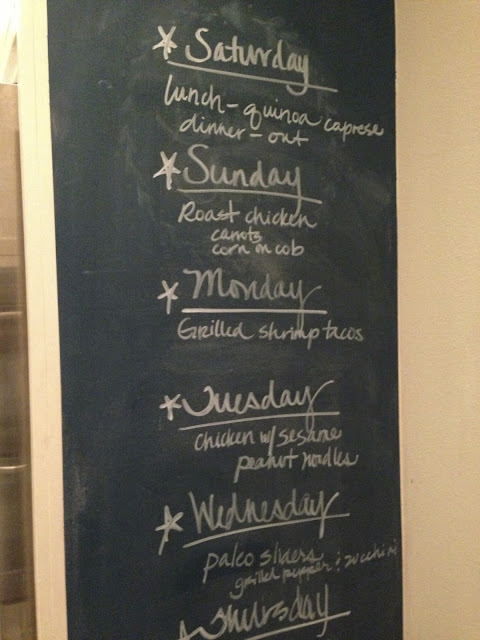 Saturday
lunch - quinoa caprese
dinner - out
Sunday
Roast chicken
carrots
corn on cob
Monday
Grilled shrimp tacos
Tuesday
chicken w/ sesame
peanut noodles
Wednesday
paleo sliders
grilled pepper & zucchini
Thursday